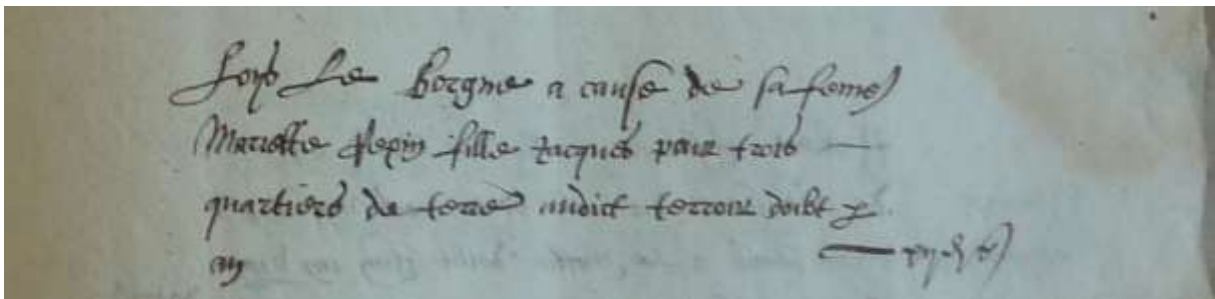 Loys Le Borgne a cause de sa feme
Mariette pepin fille Jacques pour trois
quartiers de terre audict terroir doibt p
an